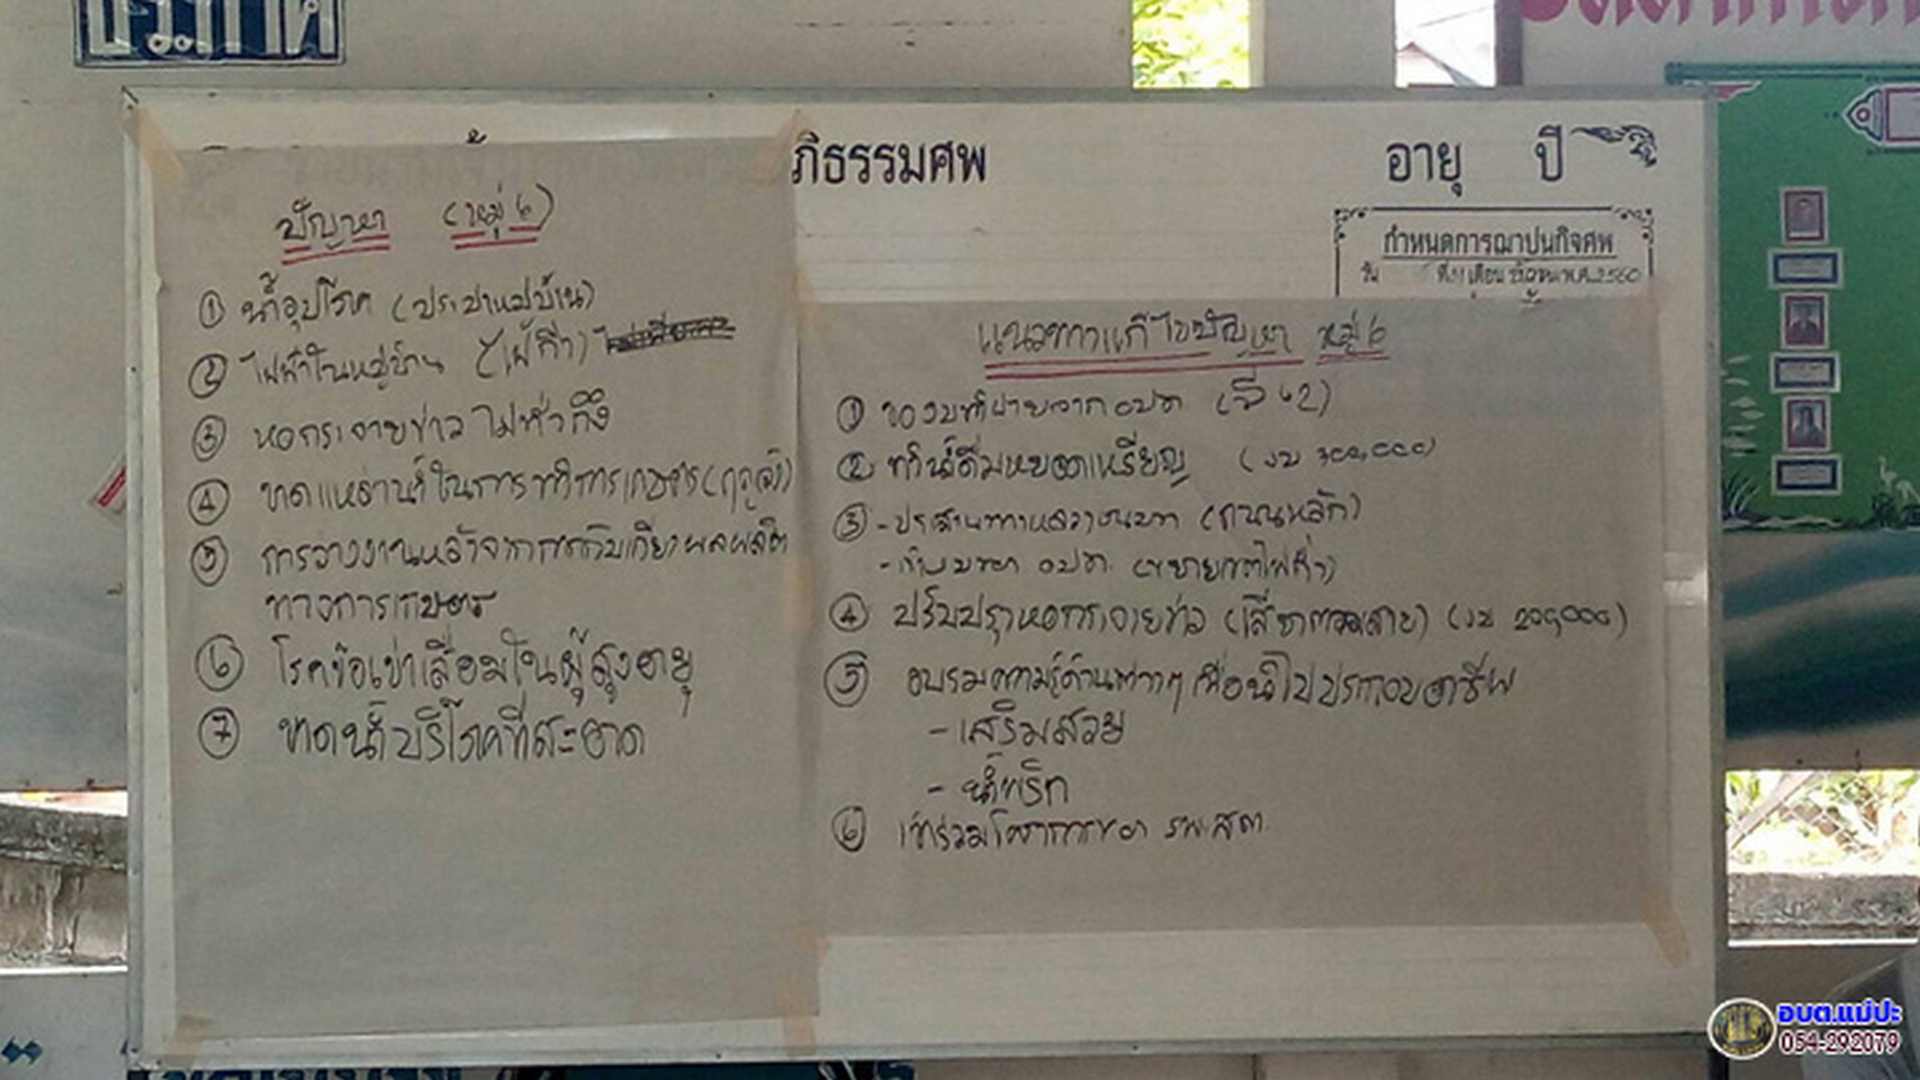 ประกาศ
ภิธรรมศพ
อายุ ปี
กำหนดการฌาปนกิจศพ
วัน ที่ เดือน พ.ศ. 2560
ปัญหา (หมู่ 6)
① น้ำอุปโภค (ประปาหมู่บ้าน)
② ไฟฟ้าในหมู่บ้าน (ไฟกิ่ง)
③ หอกระจายข่าวไม่ทั่วถึง
④ ขาดแหล่งน้ำในการทำการเกษตร (ฤดูแล้ง)
⑤ การว่างงานหลังจากการเก็บเกี่ยวผลผลิต
ทางการเกษตร
⑥ โรคข้อเข่าเสื่อมในผู้สูงอายุ
⑦ ขาดน้ำบริโภคที่สะอาด
แนวทางแก้ไขปัญหา หมู่ 6
① ของบทำฝายจาก อปท (ปี 62)
② ทำน้ำดื่มหยอดเหรียญ (งบ 300,000)
③ - ประสานทางหลวงชนบท (ถนนหลัก)
- ของบจาก อปท. (ขยายเขตไฟกิ่ง)
④ ปรับปรุงหอกระจายข่าว (เสียงตามสาย) (งบ 200,000)
⑤ อบรมความรู้ด้านต่างๆ เพื่อนำไปประกอบอาชีพ
- เสริมสวย
- น้ำพริก
⑥ เข้าร่วมโครงการของ รพ.สต.
อบต.แม่ปะ
054-292079